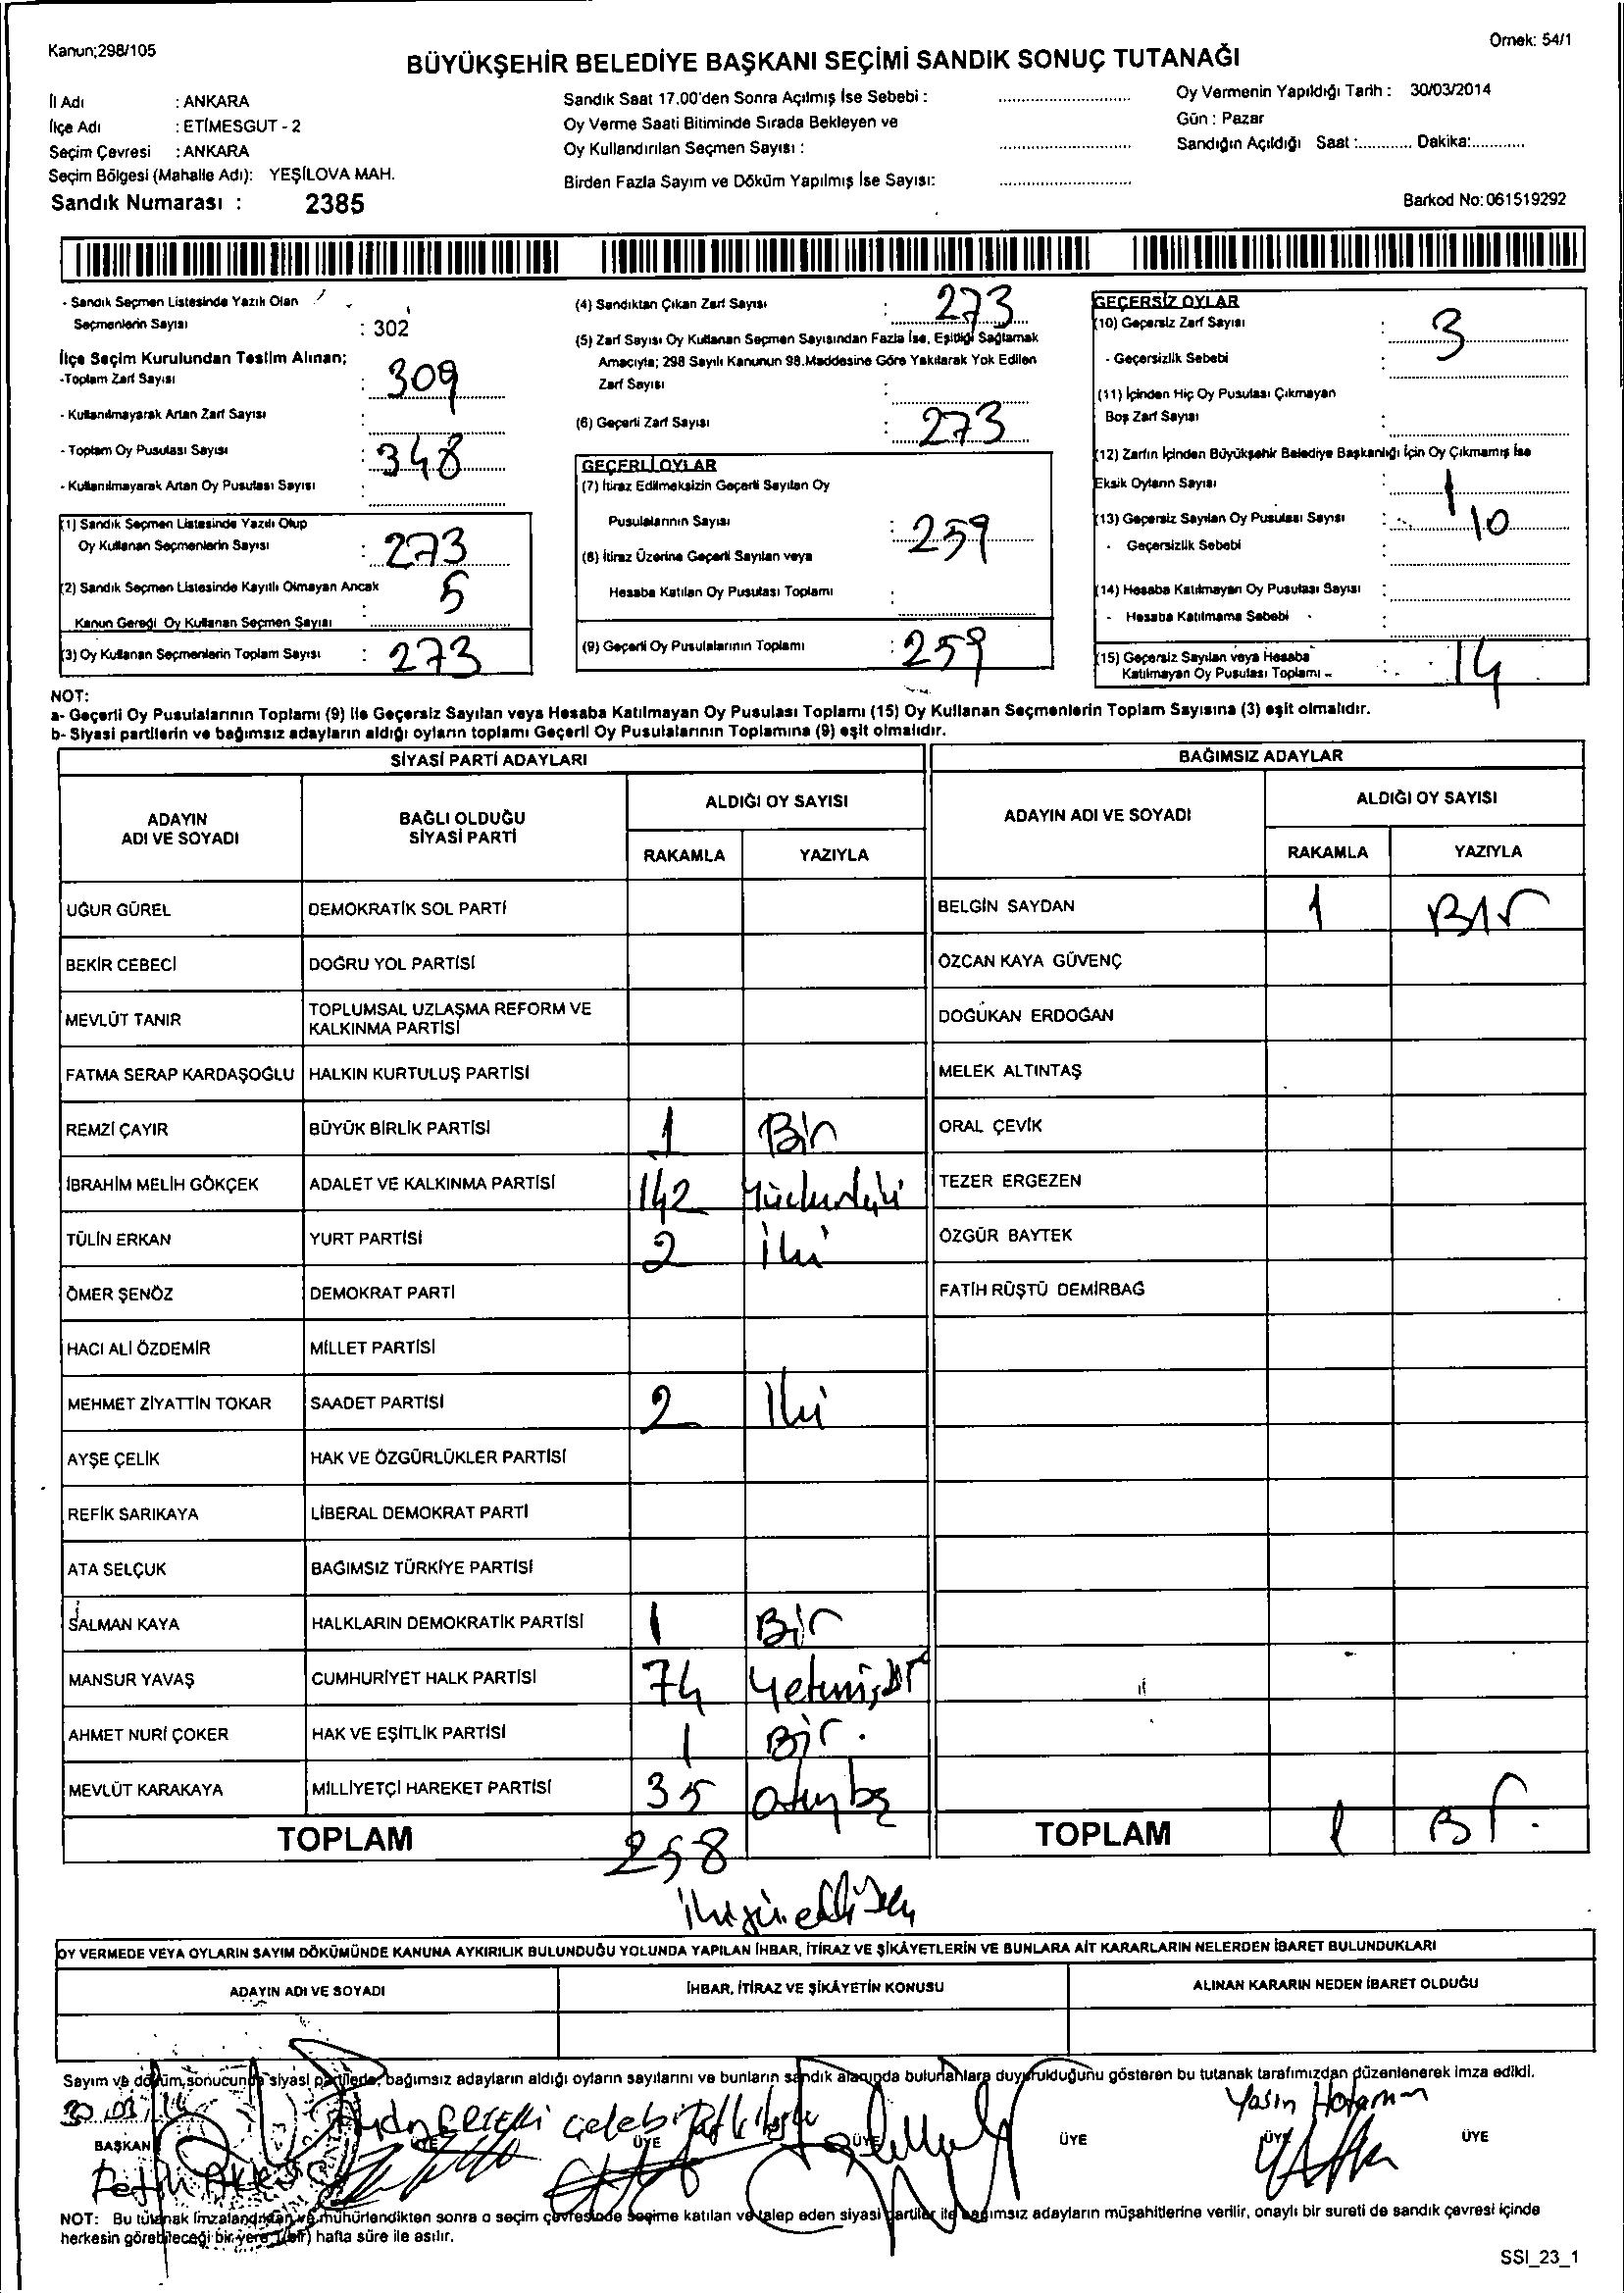 Kanun;298/105
Örnek: 54/1
BÜYÜKŞEHİR BELEDİYE BAŞKANI SEÇİMİ SANDIK SONUÇ TUTANAĞI
İl Adı : ANKARA
İlçe Adı : ETİMESGUT - 2
Seçim Çevresi : ANKARA
Seçim Bölgesi (Mahalle Adı): YEŞİLOVA MAH.
Sandık Numarası : 2385
Sandık Saat 17.00'den Sonra Açılmış İse Sebebi :
Oy Verme Saati Bitiminde Sırada Bekleyen ve
Oy Kullandırılan Seçmen Sayısı :
Birden Fazla Sayım ve Döküm Yapılmış İse Sayısı:
Oy Vermenin Yapıldığı Tarih : 30/03/2014
Gün : Pazar
Sandığın Açıldığı Saat :............ Dakika:............
Barkod No: 061519292
- Sandık Seçmen Listesinde Yazılı Olan
Seçmenlerin Sayısı : 302
İlçe Seçim Kurulundan Teslim Alınan;
-Toplam Zarf Sayısı : 309
- Kullanılmayarak Artan Zarf Sayısı :
- Toplam Oy Pusulası Sayısı : 348
- Kullanılmayarak Artan Oy Pusulası Sayısı :
(1) Sandık Seçmen Listesinde Yazılı Olup
Oy Kullanan Seçmenlerin Sayısı : 273
(2) Sandık Seçmen Listesinde Kayıtlı Olmayan Ancak 5
Kanun Gereği Oy Kullanan Seçmen Sayısı :
(3) Oy Kullanan Seçmenlerin Toplam Sayısı : 273
(4) Sandıktan Çıkan Zarf Sayısı : 273
(5) Zarf Sayısı Oy Kullanan Seçmen Sayısından Fazla İse, Eşitliği Sağlamak
Amacıyla; 298 Sayılı Kanunun 98.Maddesine Göre Yakılarak Yok Edilen
Zarf Sayısı :
(6) Geçerli Zarf Sayısı : 273
GEÇERLİ OYLAR
(7) İtiraz Edilmeksizin Geçerli Sayılan Oy
Pusulalarının Sayısı : 259
(8) İtiraz Üzerine Geçerli Sayılan veya
Hesaba Katılan Oy Pusulası Toplamı :
(9) Geçerli Oy Pusulalarının Toplamı : 259
GEÇERSİZ OYLAR
(10) Geçersiz Zarf Sayısı : 3
- Geçersizlik Sebebi :
(11) İçinden Hiç Oy Pusulası Çıkmayan
Boş Zarf Sayısı :
(12) Zarfın İçinden Büyükşehir Belediye Başkanlığı İçin Oy Çıkmamış İse
Eksik Oyların Sayısı : 1
(13) Geçersiz Sayılan Oy Pusulası Sayısı : 10
- Geçersizlik Sebebi :
(14) Hesaba Katılmayan Oy Pusulası Sayısı :
- Hesaba Katılmama Sebebi :
(15) Geçersiz Sayılan veya Hesaba
Katılmayan Oy Pusulası Toplamı : 14
NOT:
a- Geçerli Oy Pusulalarının Toplamı (9) ile Geçersiz Sayılan veya Hesaba Katılmayan Oy Pusulası Toplamı (15) Oy Kullanan Seçmenlerin Toplam Sayısına (3) eşit olmalıdır.
b- Siyasi partilerin ve bağımsız adayların aldığı oyların toplamı Geçerli Oy Pusulalarının Toplamına (9) eşit olmalıdır.
SİYASİ PARTİ ADAYLARI
ADAYIN ADI VE SOYADI
BAĞLI OLDUĞU SİYASİ PARTİ
ALDIĞI OY SAYISI
RAKAMLA YAZIYLA
UĞUR GÜREL DEMOKRATİK SOL PARTİ
BEKİR CEBECİ DOĞRU YOL PARTİSİ
MEVLÜT TANIR TOPLUMSAL UZLAŞMA REFORM VE KALKINMA PARTİSİ
FATMA SERAP KARDAŞOĞLU HALKIN KURTULUŞ PARTİSİ
REMZİ ÇAYIR BÜYÜK BİRLİK PARTİSİ 1 Bir
İBRAHİM MELİH GÖKÇEK ADALET VE KALKINMA PARTİSİ 142
TÜLİN ERKAN YURT PARTİSİ 2 iki
ÖMER ŞENÖZ DEMOKRAT PARTİ
HACI ALİ ÖZDEMİR MİLLET PARTİSİ
MEHMET ZİYATTİN TOKAR SAADET PARTİSİ 2 Iki
AYŞE ÇELİK HAK VE ÖZGÜRLÜKLER PARTİSİ
REFİK SARIKAYA LİBERAL DEMOKRAT PARTİ
ATA SELÇUK BAĞIMSIZ TÜRKİYE PARTİSİ
SALMAN KAYA HALKLARIN DEMOKRATİK PARTİSİ 1 Bir
MANSUR YAVAŞ CUMHURİYET HALK PARTİSİ 74
AHMET NURİ ÇOKER HAK VE EŞİTLİK PARTİSİ 1 Bir.
MEVLÜT KARAKAYA MİLLİYETÇİ HAREKET PARTİSİ 35
TOPLAM 258
BAĞIMSIZ ADAYLAR
ADAYIN ADI VE SOYADI
ALDIĞI OY SAYISI
RAKAMLA YAZIYLA
BELGİN SAYDAN 1 BIr
ÖZCAN KAYA GÜVENÇ
DOĞUKAN ERDOĞAN
MELEK ALTINTAŞ
ORAL ÇEVİK
TEZER ERGEZEN
ÖZGÜR BAYTEK
FATİH RÜŞTÜ DEMİRBAĞ
TOPLAM 1
OY VERMEDE VEYA OYLARIN SAYIM DÖKÜMÜNDE KANUNA AYKIRILIK BULUNDUĞU YOLUNDA YAPILAN İHBAR, İTİRAZ VE ŞİKÂYETLERİN VE BUNLARA AİT KARARLARIN NELERDEN İBARET BULUNDUKLARI
ADAYIN ADI VE SOYADI
İHBAR, İTİRAZ VE ŞİKÂYETİN KONUSU
ALINAN KARARIN NEDEN İBARET OLDUĞU
Sayım ve döküm sonucunda siyasi partilerle, bağımsız adayların aldığı oyların sayılarını ve bunların sandık alanında bulunanlara duyurulduğunu gösteren bu tutanak tarafımızdan düzenlenerek imza edildi.
Yasin
BAŞKAN ÜYE ÜYE ÜYE ÜYE ÜYE ÜYE
NOT: Bu tutanak imzalandıktan ve mühürlendikten sonra o seçim çevresinde seçime katılan ve talep eden siyasi partiler ile bağımsız adayların müşahitlerine verilir, onaylı bir sureti de sandık çevresi içinde
herkesin görebileceği bir yere 1(bir) hafta süre ile asılır.
SSI_23_1